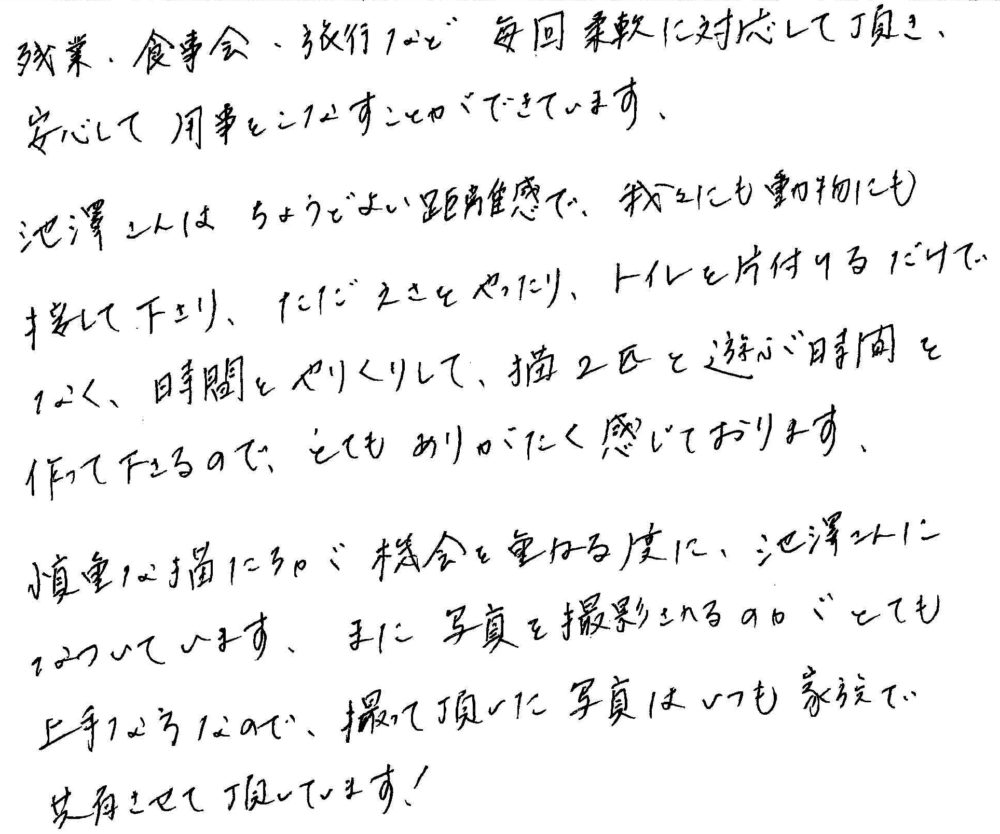 残業、食事会、旅行など 毎回柔軟に対応して頂き、
安心して 用事をこなすことができています。
池澤さんは ちょうどよい距離感で、我々にも動物にも
接して下さり、ただ えさをやったり、トイレを片付けるだけで
なく、時間をやりくりして、猫2匹と遊ぶ時間を
作って下さるので、とてもありがたく感じております。
慎重な猫たちが 機会を重ねる度に、池澤さんに
なついています。また 写真を撮影されるのがとても
上手な方なので、撮って頂いた写真はいつも家族で
共有させて頂いています!